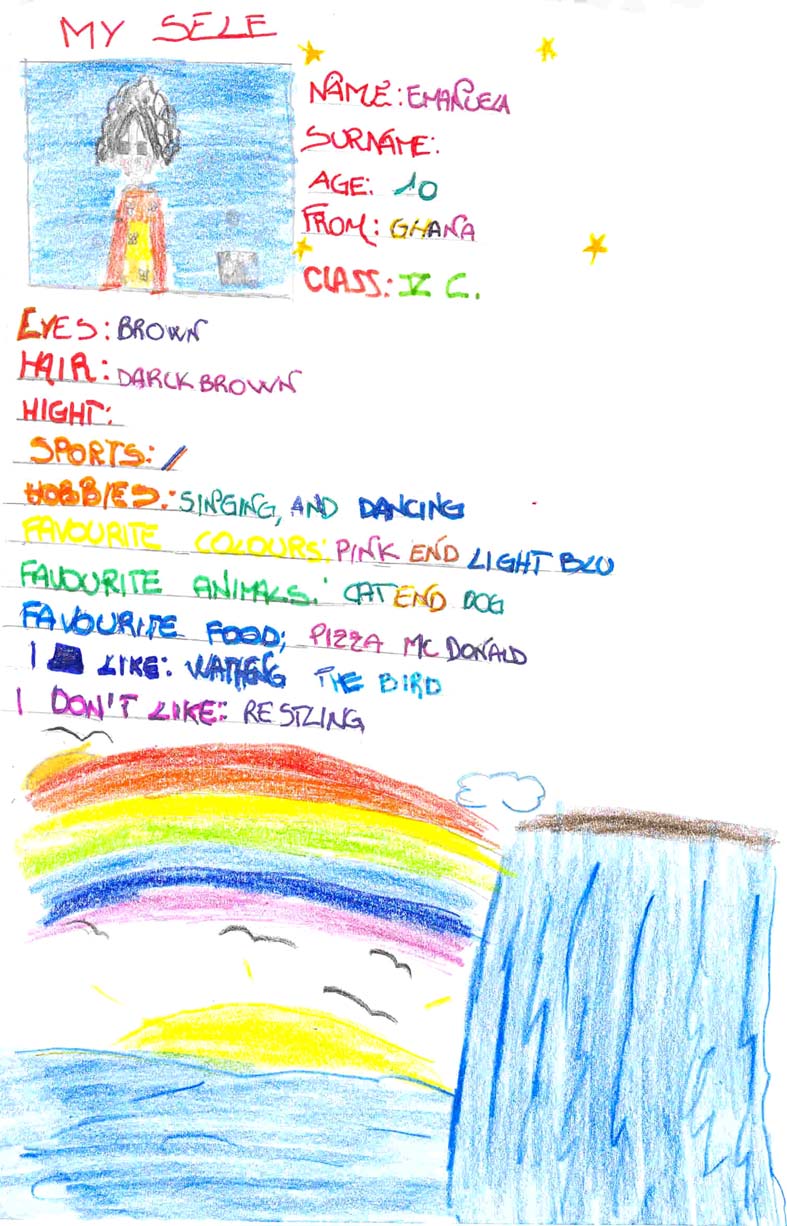 MY SELF
NAME: EMANUELA
SURNAME:
AGE: 10
FROM: GHANA
CLASS: V C.
EYES: BROWN
HAIR: DARCK BROWN
HIGHT:
SPORTS: /
HOBBIES: SINGING, AND DANCING
FAVOURITE COLOURS: PINK END LIGHT BLU
FAVOURITE ANIMALS: CAT END DOG
FAVOURITE FOOD; PIZZA MC DONALD
I LIKE: THE BIRD
I DON'T LIKE: RESTLING